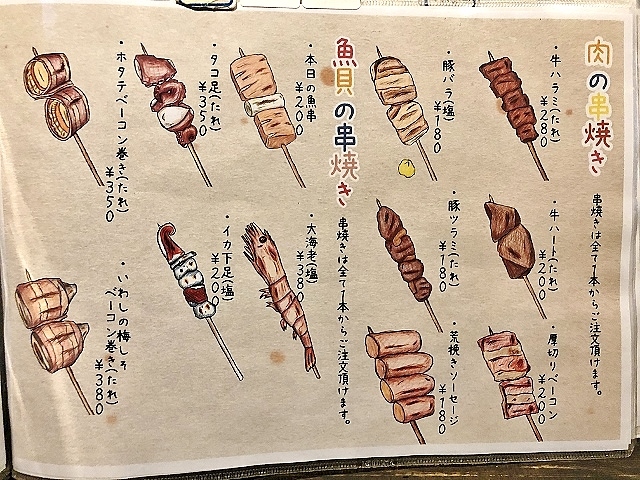 肉の串焼き
串焼きは全て1本からご注文頂けます。
・牛ハラミ(たれ)
¥280
・牛ハート(たれ)
¥200
・厚切りベーコン
¥200
・豚バラ(塩)
¥180
・豚ツラミ(たれ)
¥180
・荒挽きソーセージ
¥180
魚貝の串焼き
串焼きは全て1本からご注文頂けます。
・本日の魚串
¥200
・大海老(塩)
¥380
・タコ足(たれ)
¥350
・イカ下足(塩)
¥200
・ホタテベーコン巻き(たれ)
¥350
・いわしの梅しそ
ベーコン巻き(たれ)
¥380